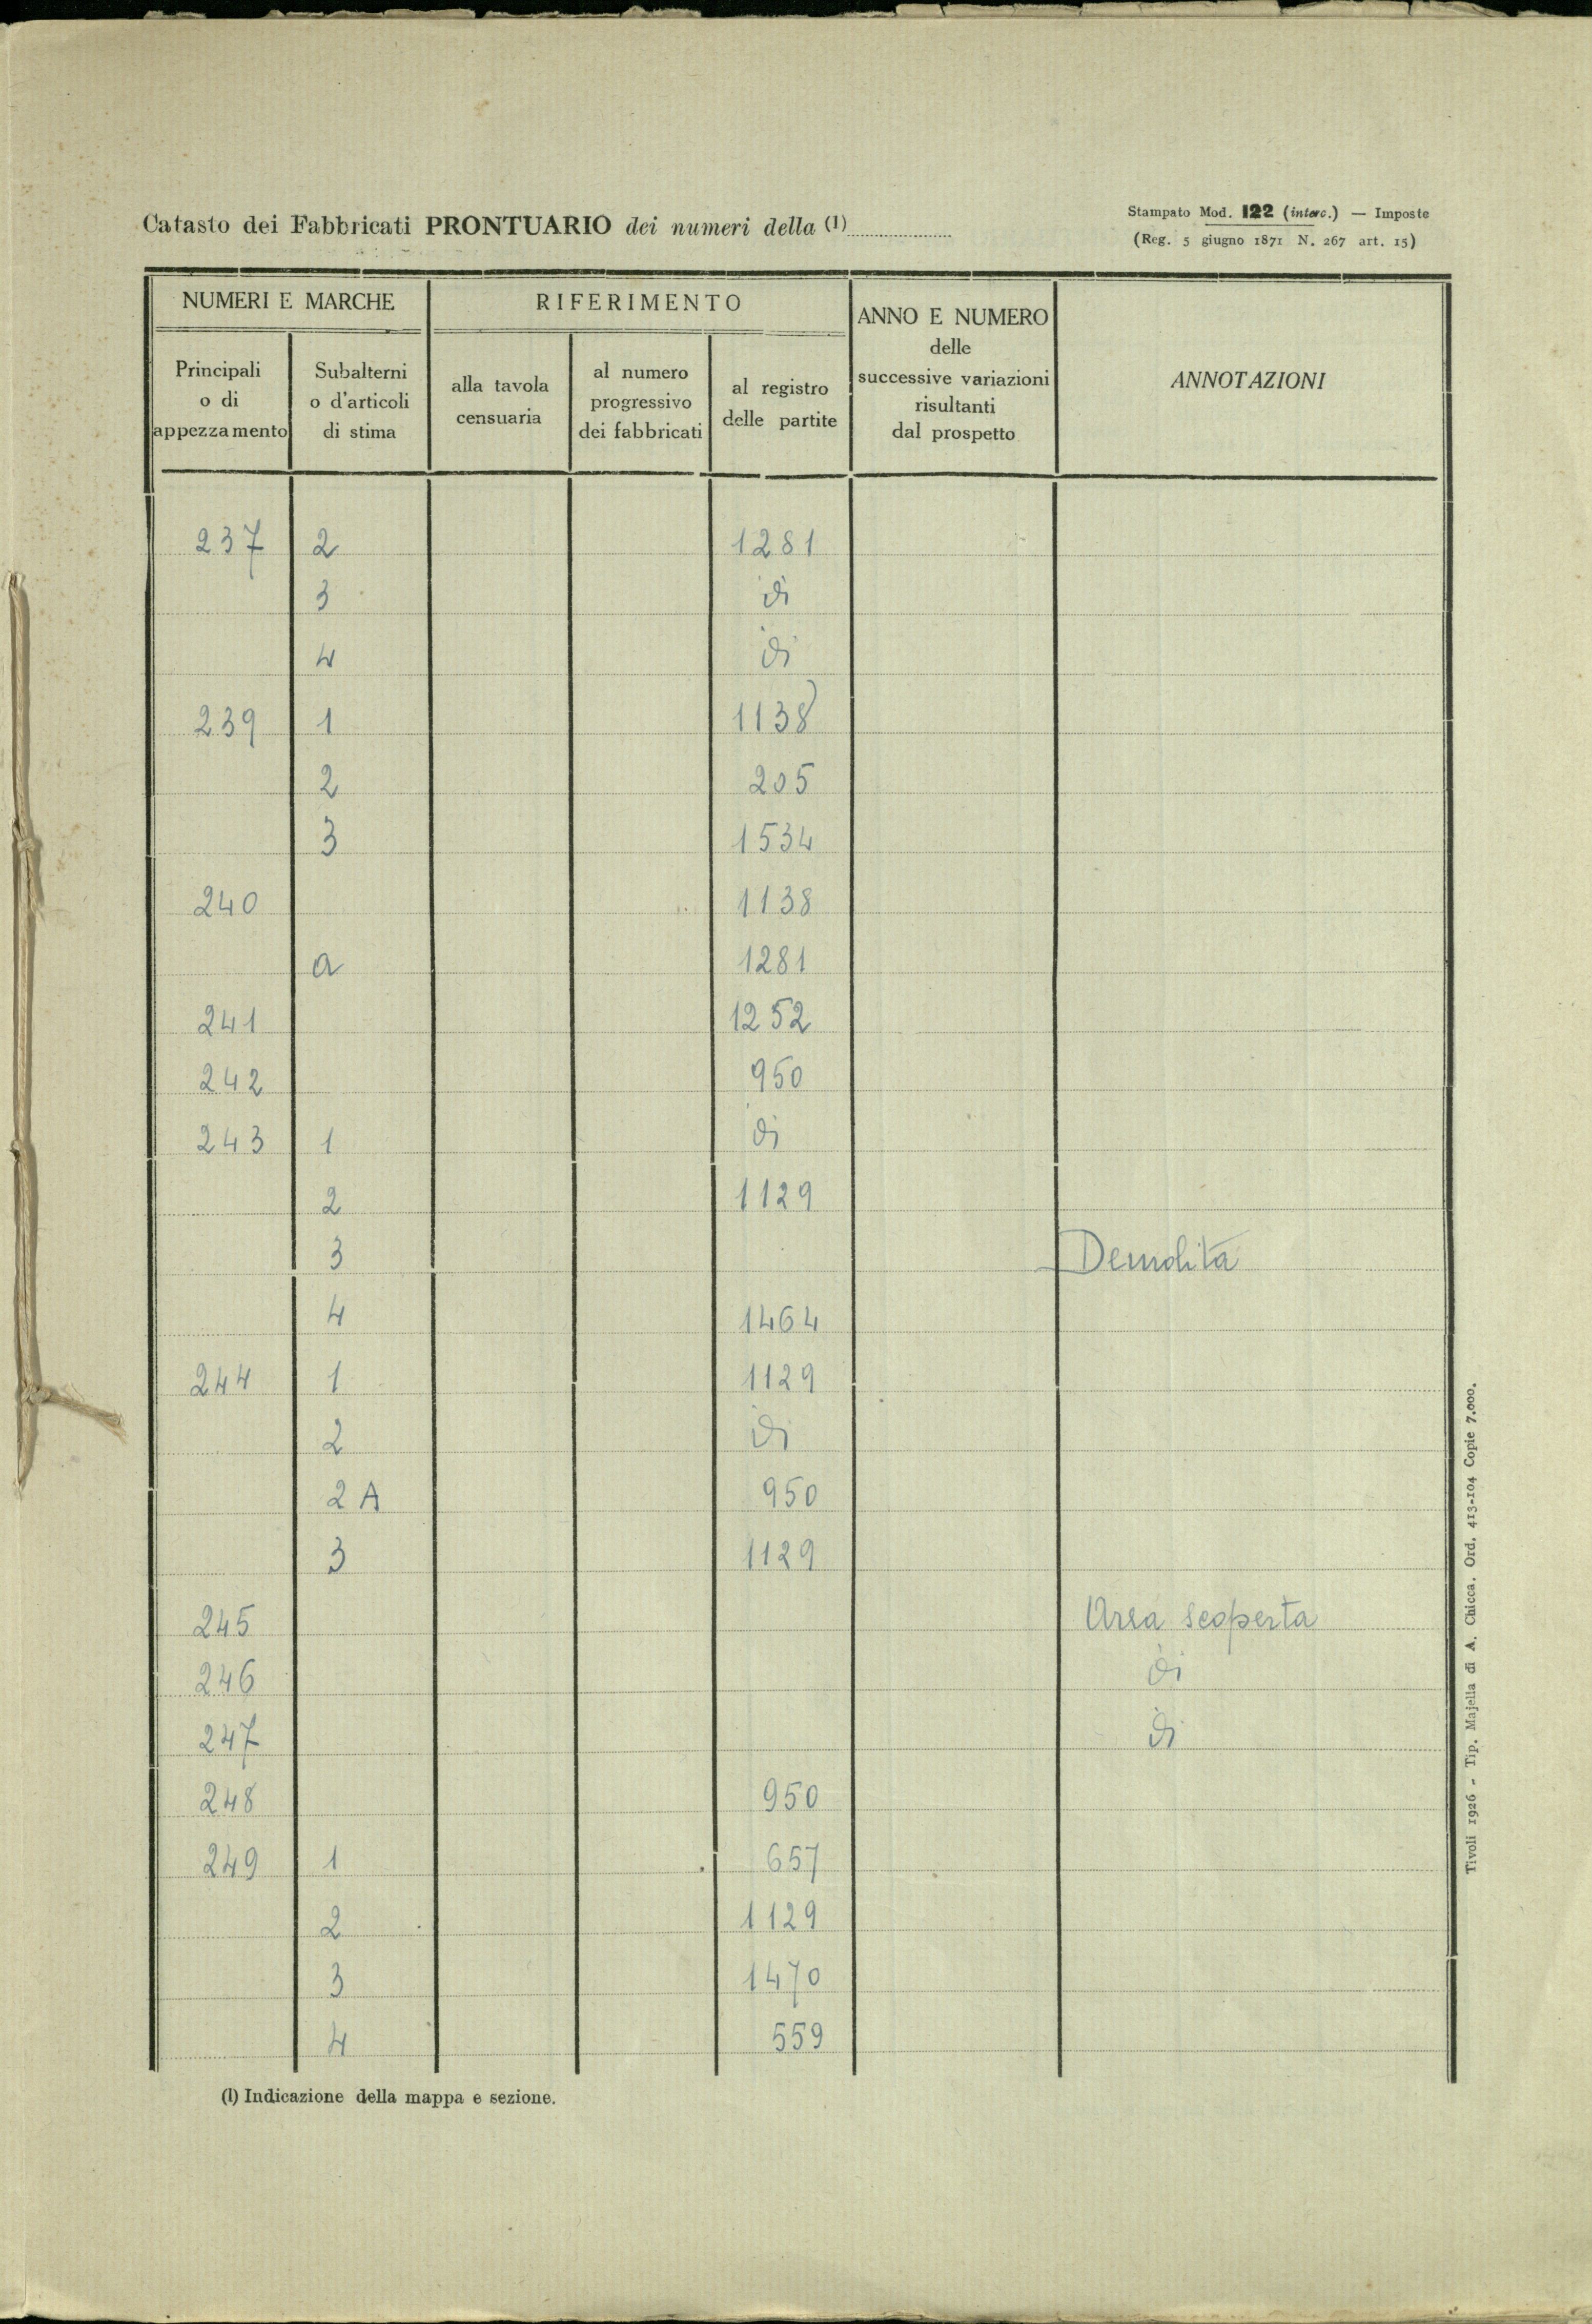 Catasto dei Fabbricati PRONTUARIO dei numeri della (1)
Stampato Mod. 122 (interc.) — Imposte
(Reg. 5 giugno 1871 N. 267 art. 15)
NUMERI E MARCHE
RIFERIMENTO
ANNO E NUMERO
delle
successive variazioni
risultanti
dal prospetto
ANNOTAZIONI
Principali
o di
appezzamento
Subalterni
o d'articoli
di stima
alla tavola
censuaria
al numero
progressivo
dei fabbricati
al registro
delle partite
237 2 1281
3 di
4 di
239 1 1138
2 205
3 1534
240 1138
a 1281
241 1252
242 950
243 1 di
2 1129
3 Demolita
4 1464
244 1 1129
2 di
2 A 950
3 1129
245 Area scoperta
246 di
247 di
248 950
249 1 657
2 1129
3 1470
4 559
(1) Indicazione della mappa e sezione.
Tivoli 1926 - Tip. Majella di A. Chicca. Ord. 413-104 Copie 7.000.